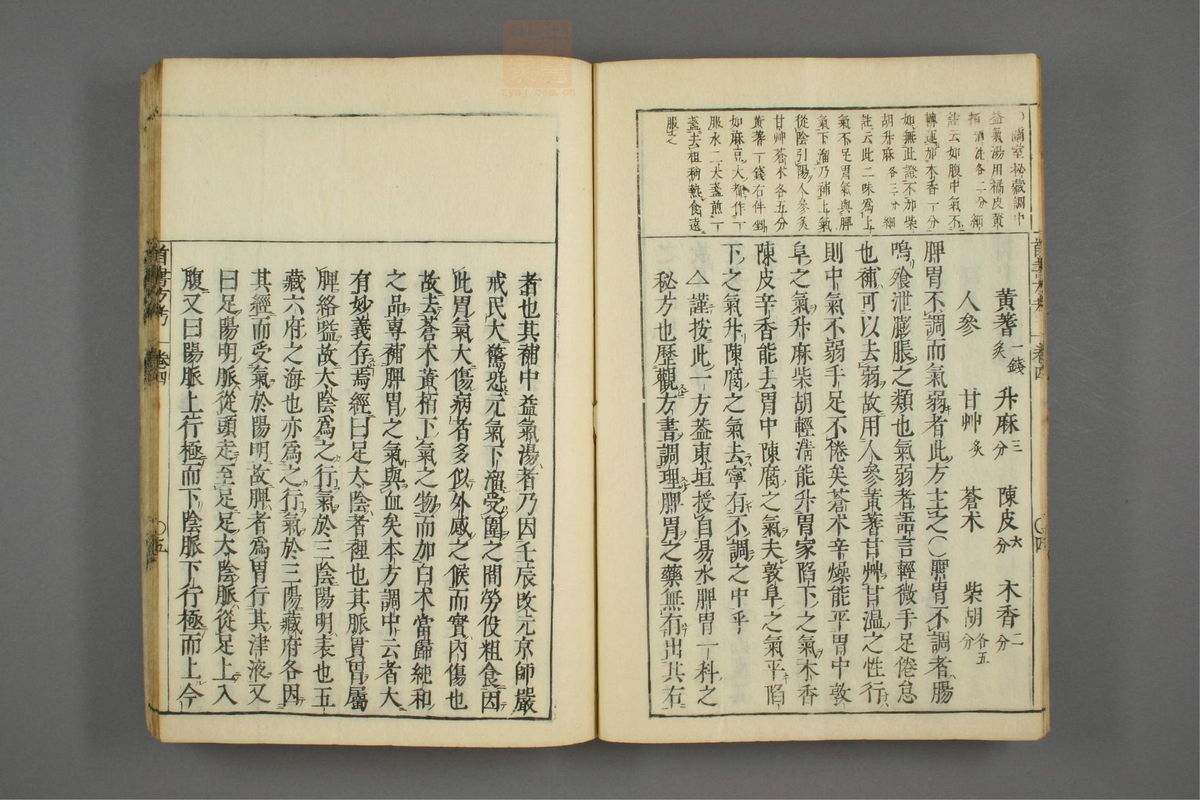 蘭室秘藏調中
益氣湯用橘皮黃
栢酒洗各二分細
註云如腹中氣不
轉運加木香一分
如無此證不加柴
胡升麻各三分細
註云此二味爲上
氣不足胃氣與脾
氣下溜乃補上氣
從陰引陽人參炙
甘艸蒼朮各五分
黃蓍一錢右件剉
如麻豆大都作一
服水二大盞煎一
盞去柤稍熱食遠
服之
黃蓍炙一錢 升麻三分 陳皮六分 木香二分
人參 甘艸炙 蒼朮 柴胡各五分
脾胃不調而氣弱者此方主之○脾胃不調者腸
鳴飱泄膨脹之類也氣弱者語言輕微手足倦怠
也補可以去弱故用人參黃蓍甘艸甘温之性行
則中氣不弱手足不倦矣蒼朮辛燥能平胃中敦
阜之氣升麻柴胡輕清能升胃家陷下之氣木香
陳皮辛香能去胃中陳腐之氣夫敦阜之氣平陷
下之氣升陳腐之氣去寧有不調之中乎
△謹按此一方葢東垣授自易水脾胃一科之
秘方也歷觀方書調理脾胃之藥無有出其右
首書方考 卷四 ○四
者也其補中益氣湯者乃因壬辰改元京師嚴
戒民大驚恐元氣下溜受圍之間勞役粗食因
此胃氣大傷病者多似外感之候而實內傷也
故去蒼朮黃栢下氣之物而加白朮當歸純和
之品專補脾胃之氣與血矣本方調中云者大
有妙義存焉經曰足太陰者裡也其脈貫胃屬
脾絡嗌故太陰爲之行氣於三陰陽明表也五
藏六府之海也亦爲之行氣於三陽藏府各因
其經而受氣於陽明故脾者爲胃行其津液又
曰足陽明脈從頭走至足足太陰脈從足上入
腹又曰陽脈上行極而下陰脈下行極而上今
首書方考 卷四 ○五
zysj.com.cn